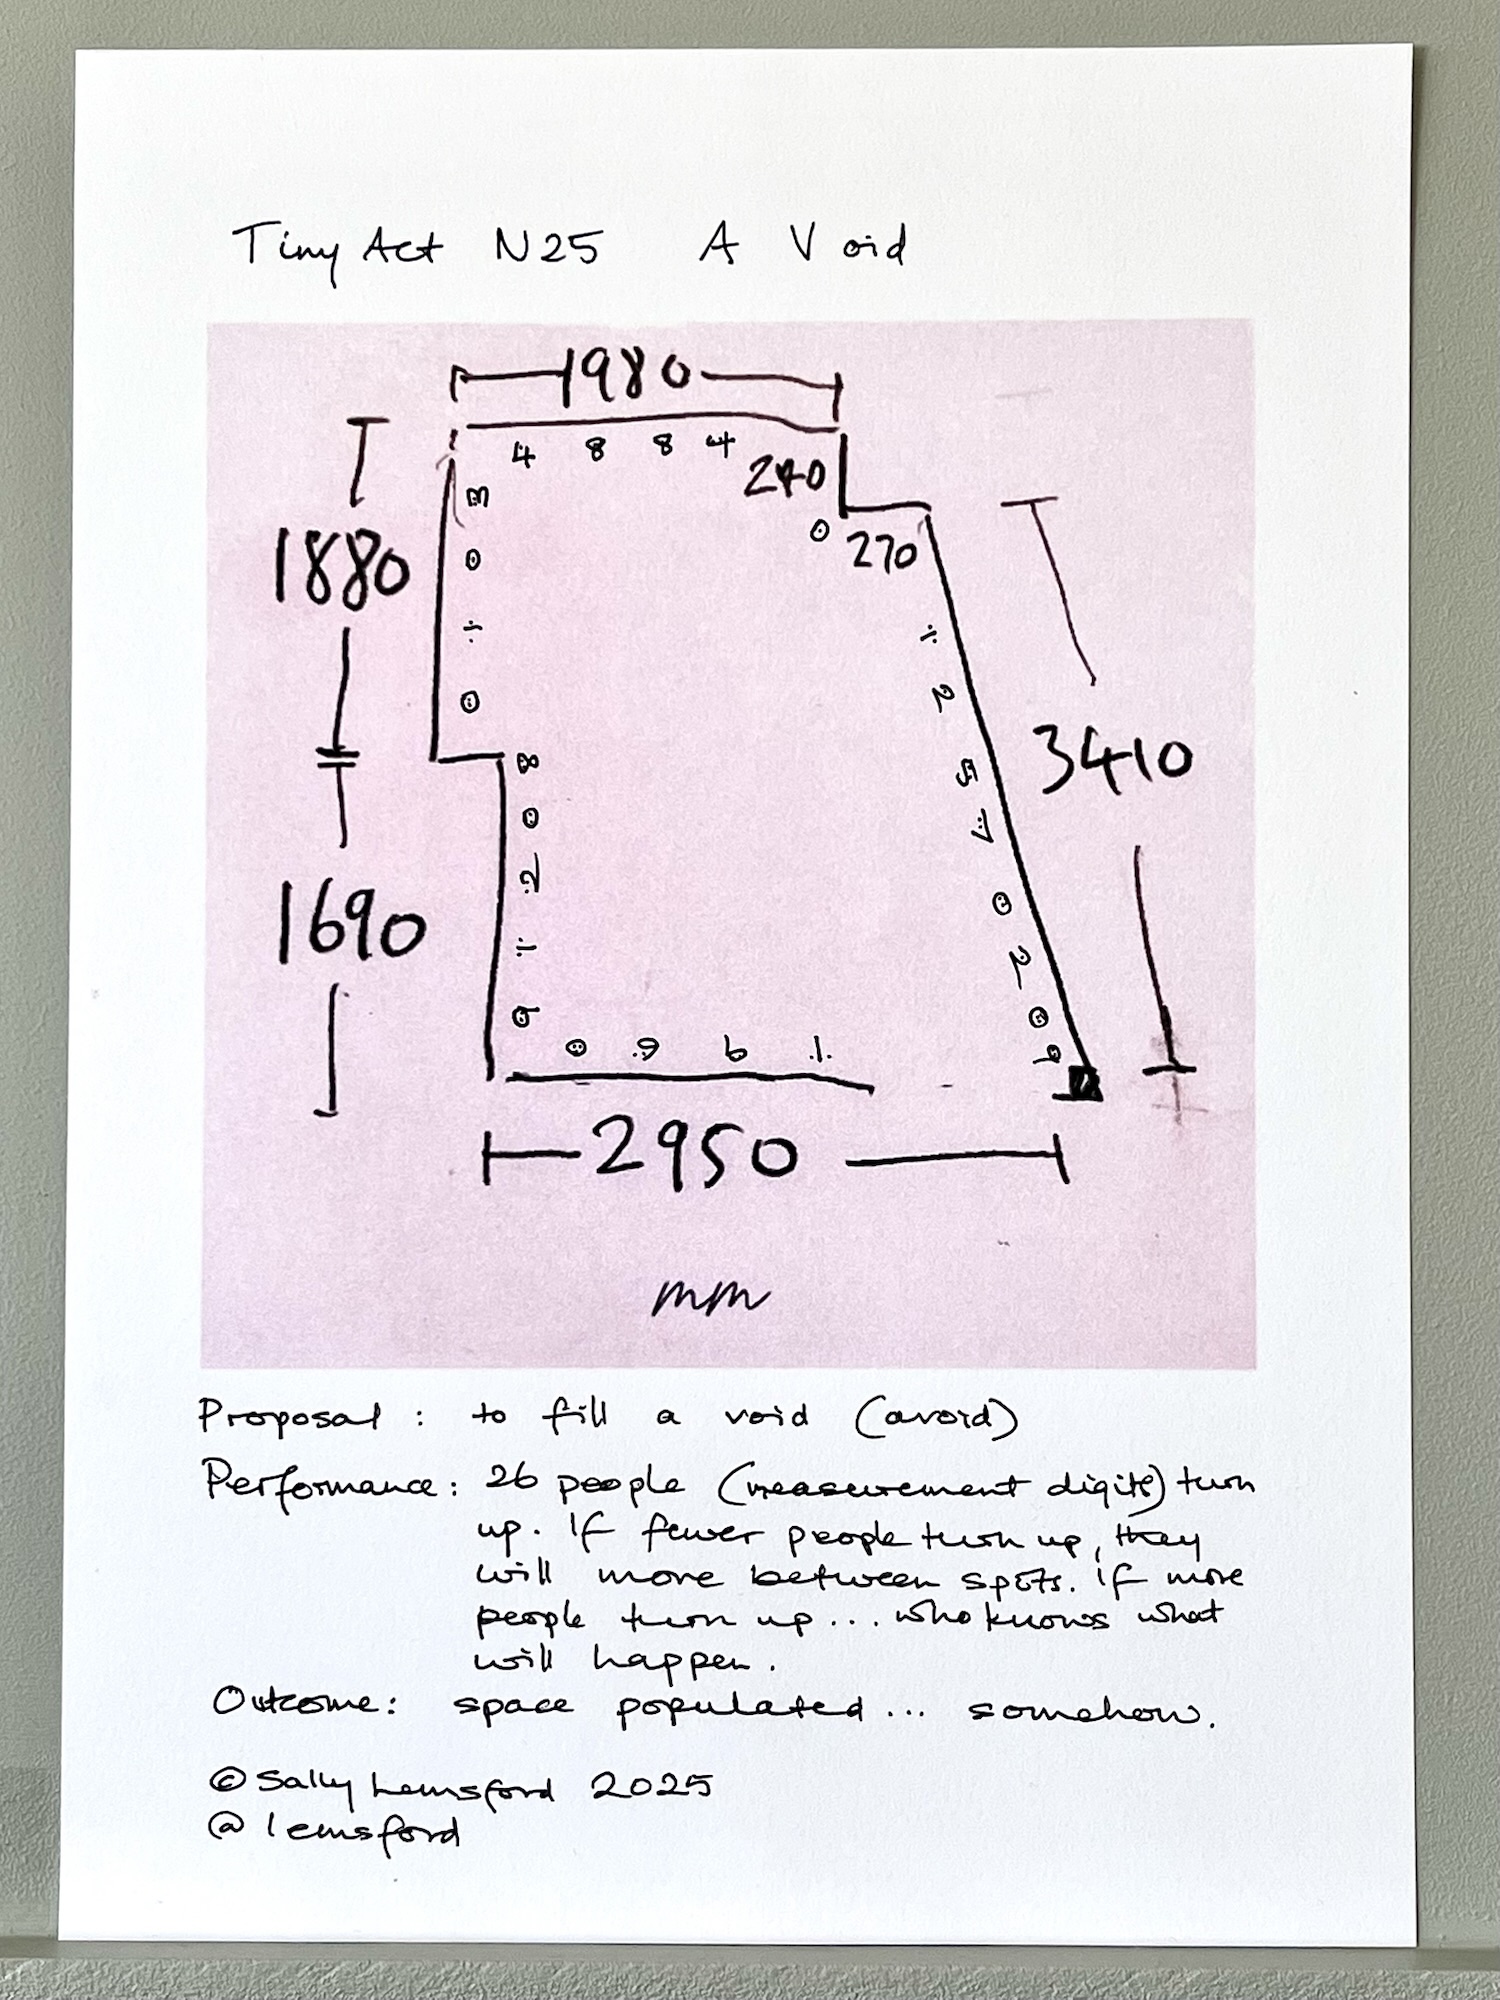 Tiny Act N25 A Void
1980
4 8 8 4
240
270
1880
1690
3410
2950
mm
Proposal: to fill a void (avoid)
Performance: 26 people (measurement digits) turn
up. If fewer people turn up, they
will move between spots. If more
people turn up... who knows what
will happen.
Outcome: space populated... somehow.
© Sally Lemsford 2025
@lemsford